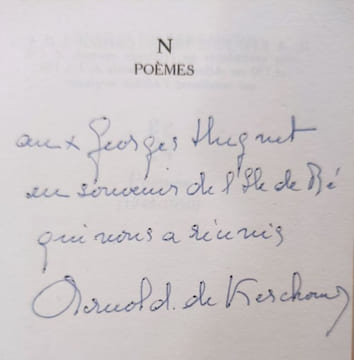 N
POÈMES
aux Georges Hugnet
en souvenir de l'Ile de Ré
qui nous a réunis
Arnold. de Kerchove